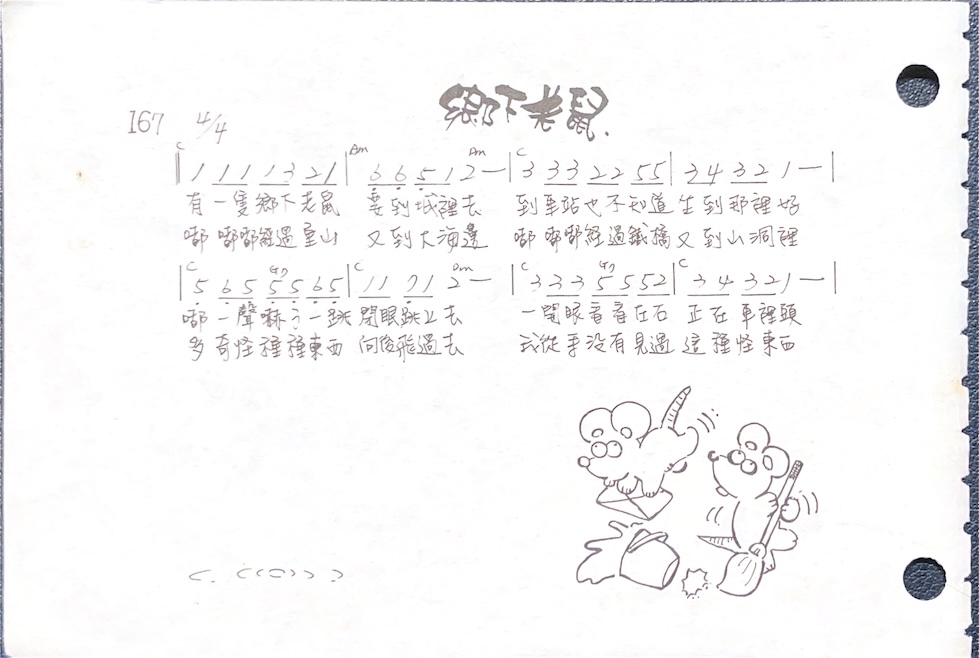 鄉下老鼠.
167 4/4
C Am Am C
|| 1 1 1 1 3 2 1 | 6 6 5 1 2 — | 3 3 3 2 2 5 5 | 3 4 3 2 1 — |
有一隻鄉下老鼠 要到城裡去 到車站也不知道 生到那裡好
嘟嘟嘟經過里山 又到大海邊 嘟嘟嘟經過鐵橋 又到山洞裡
C G7 C Dm C G7 C
| 5 6 5 5 5 6 5 | 1 1 7 1 2 — | 3 3 3 5 5 5 2 | 3 4 3 2 1 — |
嘟一聲嚇了一跳 閉眼跳上去 一開眼看看左右 正在車裡頭
多奇怪種種東西 向後飛過去 我從來沒有見過 這種怪東西